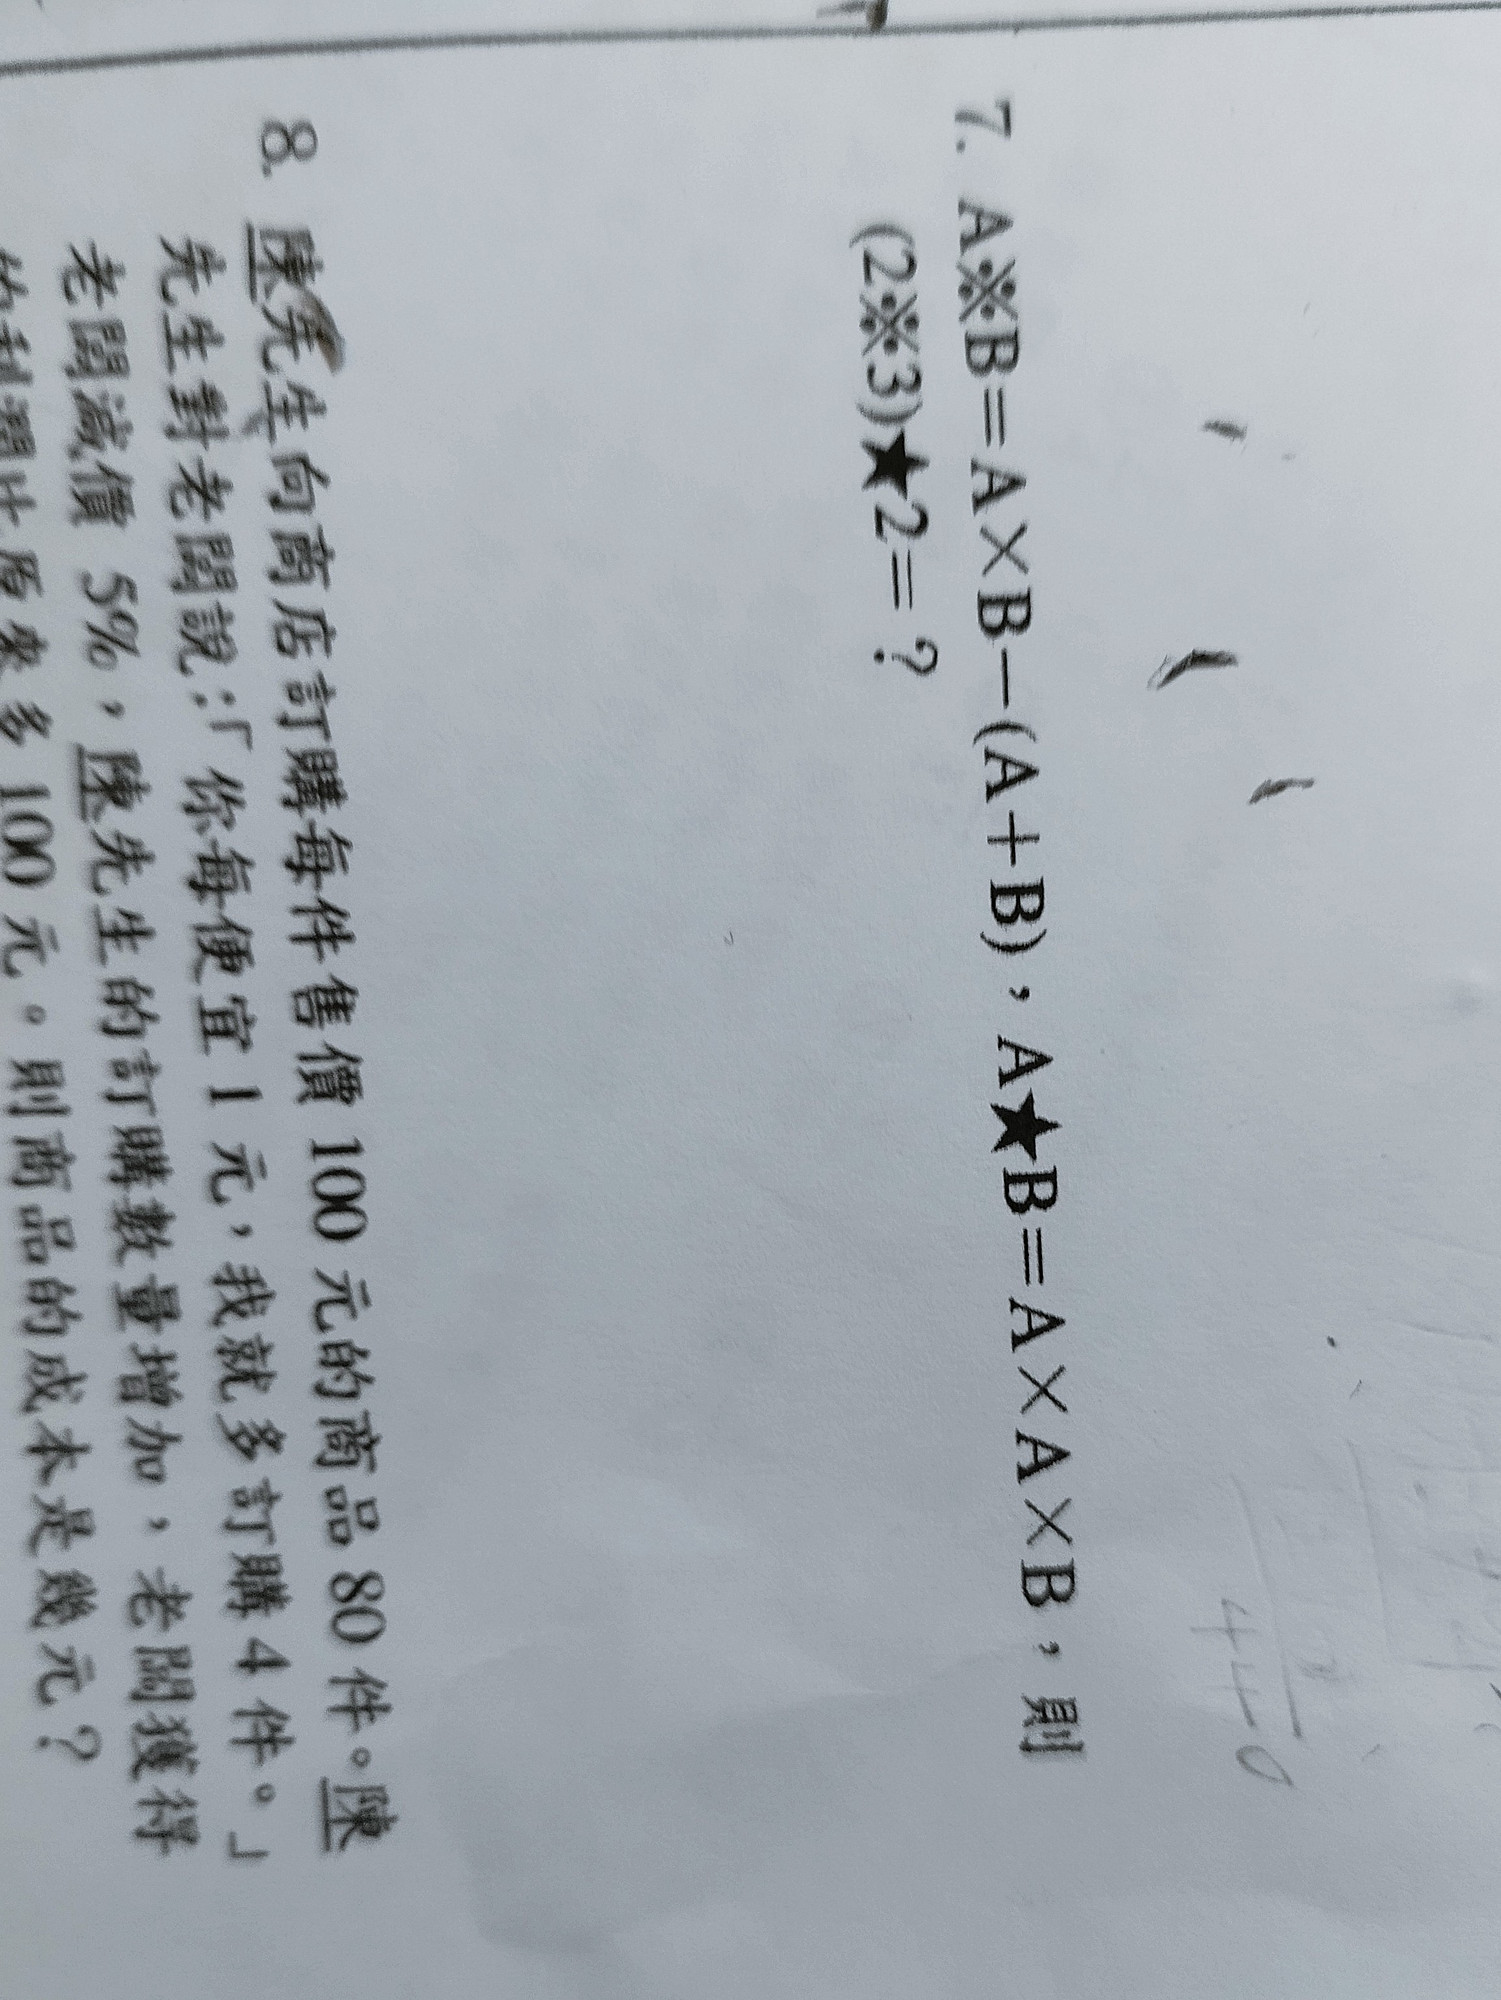 7. A※B=A×B-(A+B),A★B=A×A×B,則
(2※3)★2=?
8. 陳先生向商店訂購每件售價 100 元的商品 80 件。陳
先生對老闆說:「你每便宜 1 元,我就多訂購 4 件。」
老闆減價 5%,陳先生的訂購數量增加,老闆獲得
的利潤比原來多 100 元。則商品的成本是幾元?
440